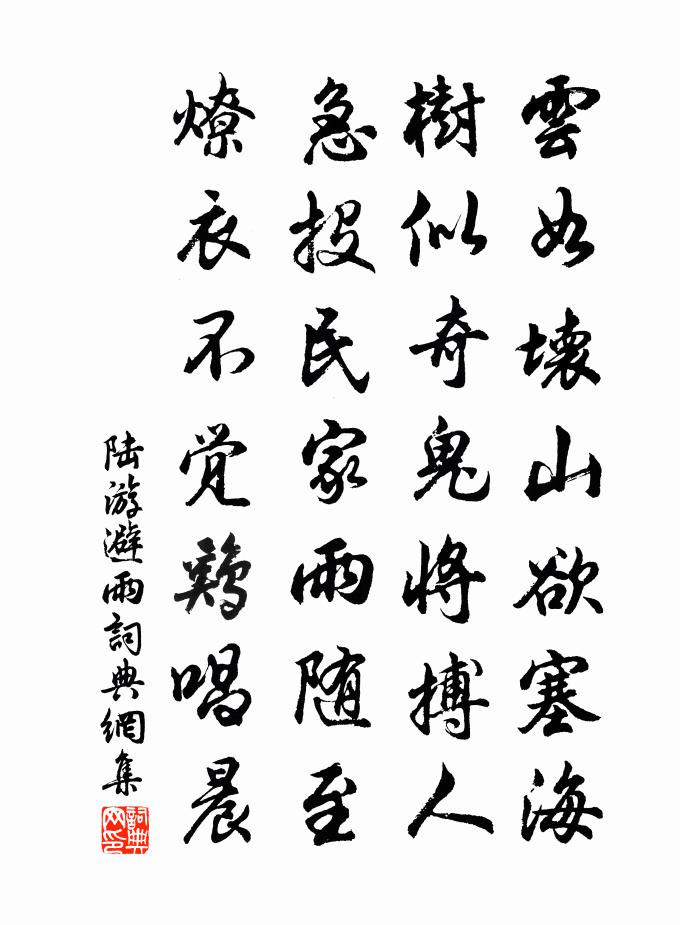 雲如壞山欲塞海
樹似奇鬼將搏人
急投民家雨随至
燎衣不觉鷄唱晨
陆游避雨詞典網集
詞典
网印